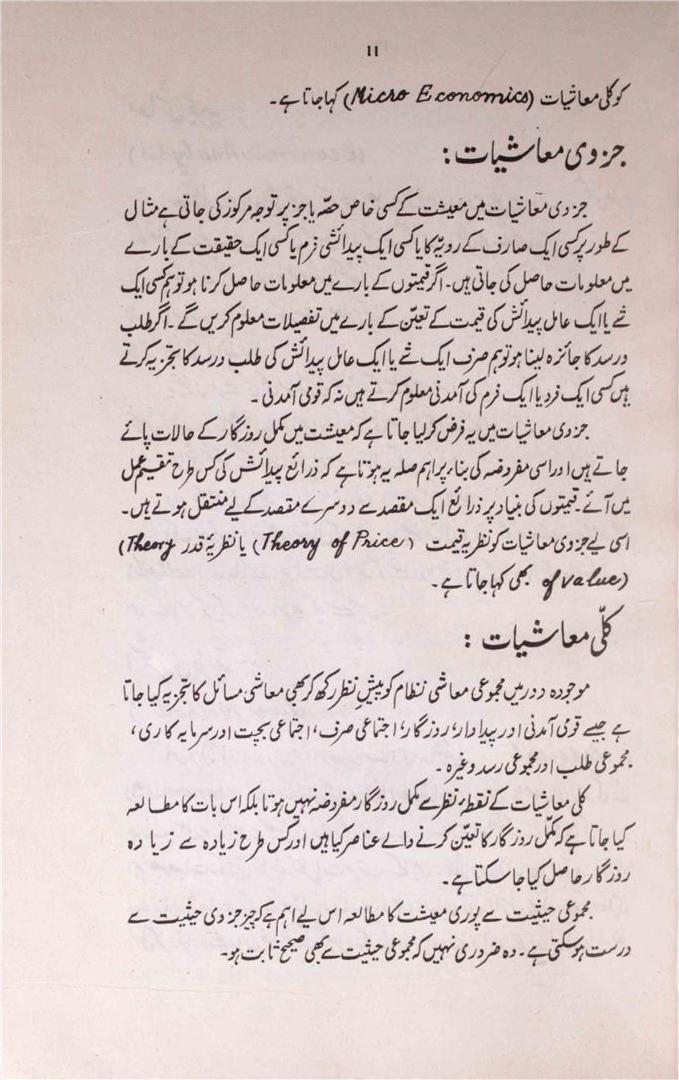 11
کو کلی معاشیات (Micro Economics) کہا جاتا ہے۔
جزوی معاشیات :
جزوی معاشیات میں معیشت کے کسی خاص حصّہ یا جز پر توجہ مرکوز کی جاتی ہے مثال
کے طور پر کسی ایک صارف کے رویّہ کا یا کسی ایک پیدائشی فرم یا کسی ایک حقیقت کے بارے
میں معلومات حاصل کی جاتی ہیں۔ اگر قیمتوں کے بارے میں معلومات حاصل کرنا ہو تو ہم کسی ایک
شے یا ایک عامل پیدائش کی قیمت کے تعیّن کے بارے میں تفصیلات معلوم کریں گے۔ اگر طلب
و رسد کا جائزہ لینا ہو تو ہم صرف ایک شے یا ایک عامل پیدائش کی طلب و رسد کا تجزیہ کرتے
ہیں کسی ایک فرد یا ایک فرم کی آمدنی معلوم کرتے ہیں نہ کہ قومی آمدنی۔
جزوی معاشیات میں یہ فرض کر لیا جاتا ہے کہ معیشت میں مکمل روزگار کے حالات پائے
جاتے ہیں اور اسی مفروضہ کی بناء پر اہم صلہ یہ ہوتا ہے کہ ذرائع پیدائش کی کس طرح تقسیم عمل
میں آئے۔ قیمتوں کی بنیاد پر ذرائع ایک مقصد سے دوسرے مقصد کے لیے منتقل ہوتے ہیں۔
اسی لیے جزوی معاشیات کو نظریہ قیمت (Theory of Price) یا نظریۂ قدر (Theory
of value) بھی کہا جاتا ہے۔
کلّی معاشیات :
موجودہ دور میں مجموعی معاشی نظام کو پیشِ نظر رکھ کر بھی معاشی مسائل کا تجزیہ کیا جاتا
ہے جیسے قومی آمدنی اور پیداوار، روزگار، اجتماعی صرف، اجتماعی بچت اور سرمایہ کاری،
مجموعی طلب اور مجموعی رسد وغیرہ۔
کلی معاشیات کے نقطۂ نظر سے مکمل روزگار مفروضہ نہیں ہوتا بلکہ اس بات کا مطالعہ
کیا جاتا ہے کہ مکمّل روزگار کا تعیّن کرنے والے عناصر کیا ہیں اور کس طرح زیادہ سے زیادہ
روزگار حاصل کیا جا سکتا ہے۔
مجموعی حیثیت سے پوری معیشت کا مطالعہ اس لیے اہم ہے کہ چیز جزوی حیثیت سے
درست ہو سکتی ہے۔ وہ ضروری نہیں کہ مجموعی حیثیت سے بھی صحیح ثابت ہو۔